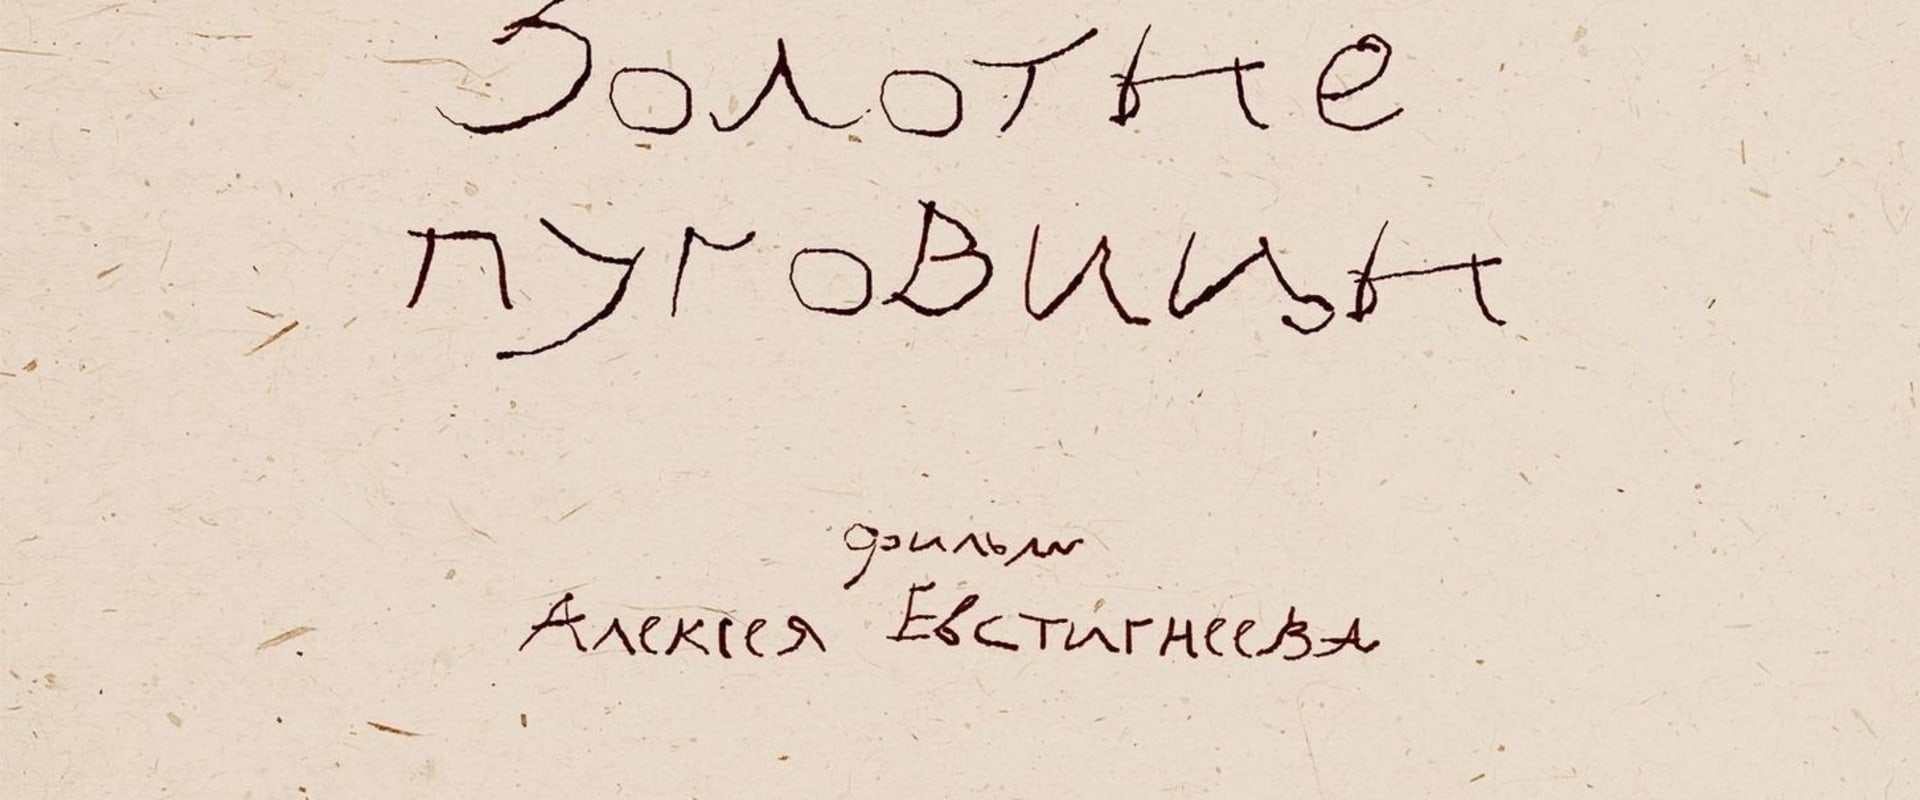 Золотые
пуговицы
фильм
Алексея Евстигнеева